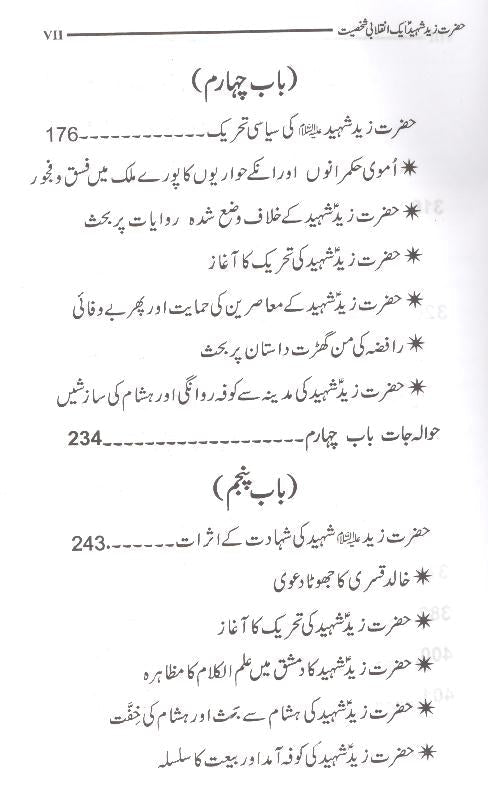 حضرت زید شہیدؑ ایک انقلابی شخصیت VII
(باب چہارم)
حضرت زید شہید علیہ السلام کی سیاسی تحریک------------176
✷ اُموی حکمرانوں اور انکے حواریوں کا پورے ملک میں فسق و فجور
✷ حضرت زیدؑ شہید کے خلاف وضع شدہ روایات پر بحث
✷ حضرت زیدؑ شہید کی تحریک کا آغاز
✷ حضرت زیدؑ شہید کے معاصرین کی حمایت اور پھر بے وفائی
✷ رافضہ کی من گھڑت داستان پر بحث
✷ حضرت زیدؑ شہید کی مدینہ سے کوفہ روانگی اور ہشام کی سازشیں
حوالہ جات باب چہارم-------------------234
(باب پنجم)
حضرت زید علیہ السلام شہید کی شہادت کے اثرات-------.243
✷ خالد قسری کا جھوٹا دعوی
✷ حضرت زیدؑ شہید کی تحریک کا آغاز
✷ حضرت زیدؑ شہید کا دمشق میں علم الکلام کا مظاہرہ
✷ حضرت زیدؑ شہید کی ہشام سے بحث اور ہشام کی خِفَّت
✷ حضرت زیدؑ شہید کی کوفہ آمد اور بیعت کا سلسلہ